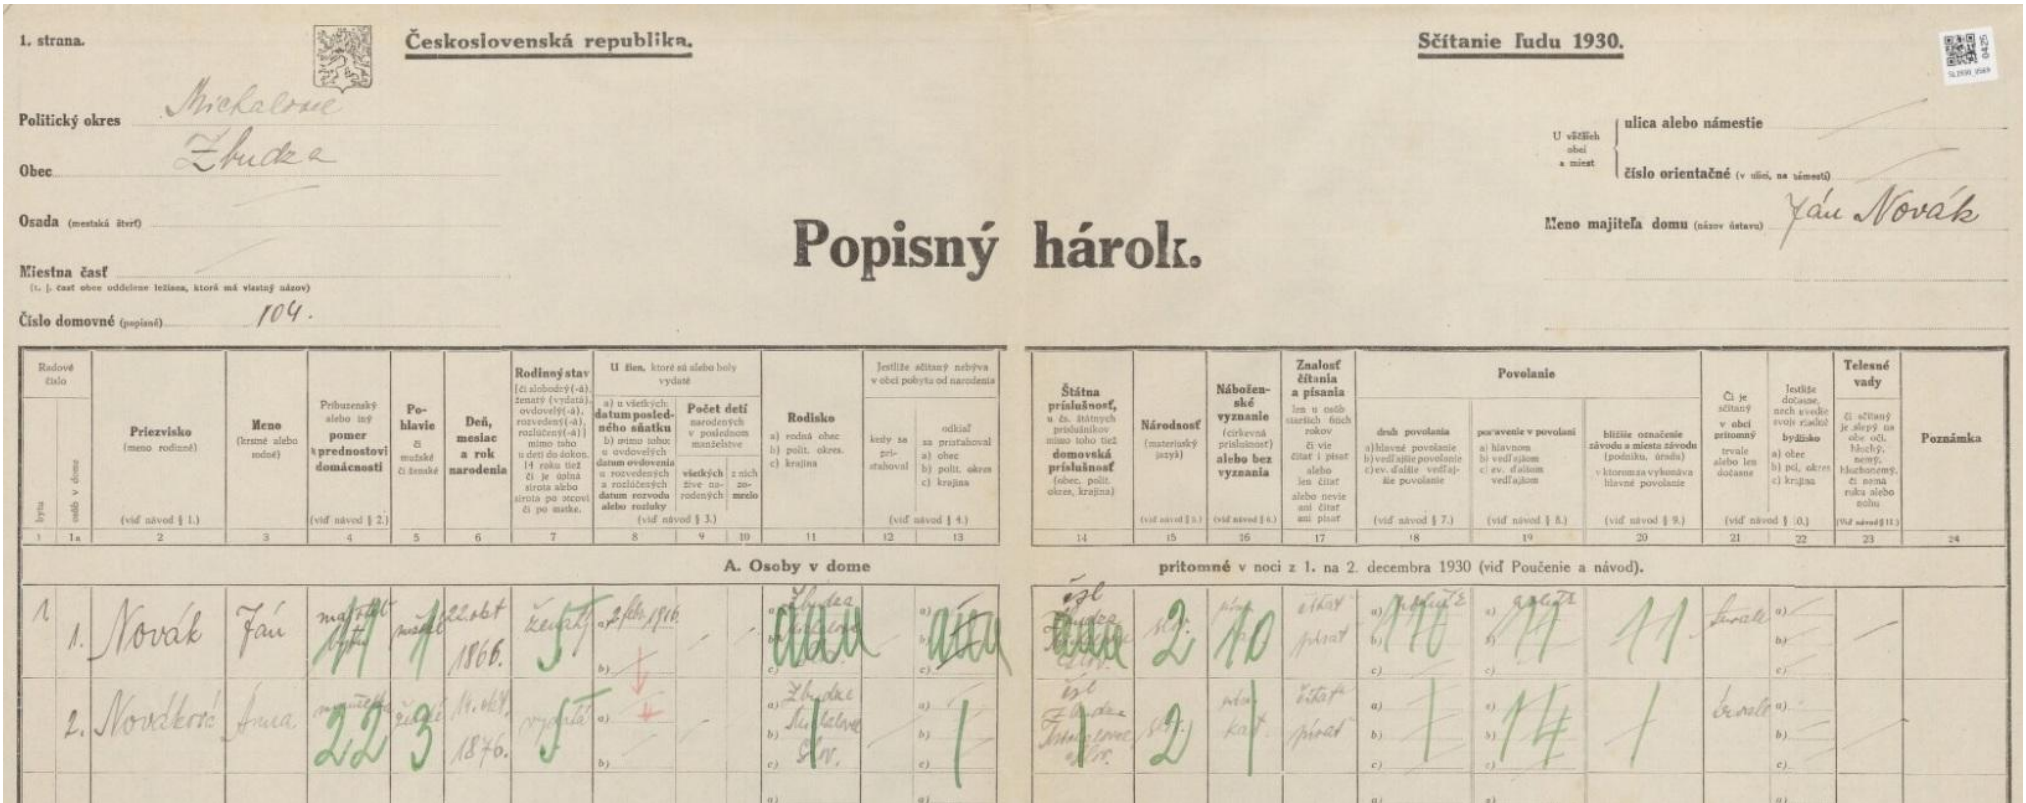 1. strana.
Československá republika.
Sčítanie ľudu 1930.
0425
SL1930_0569
Politický okres Michalovce
Obec Zbudza
Osada (mestská štvrť)
Miestna časť
(t. j. časť obce oddelene ležiaca, ktorá má vlastný názov)
Číslo domovné (popisné) 104.
U väčších
obcí
a miest
ulica alebo námestie
číslo orientačné (v ulici, na námestí)
Meno majiteľa domu (názov ústavu) Ján Novák
Popisný hárok.
Radové
číslo
bytu
osôb v dome
1
1a
Priezvisko
(meno rodinné)
(viď návod § 1.)
2
Meno
(krstné alebo
rodné)
3
Príbuzenský
alebo iný
pomer
k prednostovi
domácnosti
(viď návod § 2.)
4
Po-
hlavie
či
mužské
či ženské
5
Deň,
mesiac
a rok
narodenia
6
Rodinný stav
(či slobodný(-á),
ženatý (vydatá),
ovdovelý(-á),
rozvedený(-á),
rozlúčený(-á))
mimo toho
u detí do dokon.
14 roku tiež
či je úplná
sirota alebo
sirota po otcovi
či po matke.
7
U žien, ktoré sú alebo boly
vydaté
a) u všetkých:
datum posled-
ného sňatku
b) mimo toho:
u ovdovelých
datum ovdovenia
a rozvedených
a rozlúčených
datum rozvodu
alebo rozluky
8
Počet detí
narodených
v poslednom
manželstve
všetkých
žive na-
rodených
9
z nich
zo-
mrelo
10
(viď návod § 3.)
Rodisko
a) rodná obec
b) polit. okres.
c) krajina
11
Jestliže sčítaný nebýva
v obci pobytu od narodenia
kedy sa
pri-
sťahoval
12
odkiaľ
sa prisťahoval
a) obec
b) polit. okres
c) krajina
13
(viď návod § 4.)
Štátna
príslušnosť,
u čs. štátnych
príslušníkov
mimo toho tiež
domovská
príslušnosť
(obec, polit.
okres, krajina)
14
Národnosť
(materinský
jazyk)
(viď návod § 5.)
15
Nábožen-
ské
vyznanie
(cirkevná
príslušnosť)
alebo bez
vyznania
(viď návod § 6.)
16
Znalosť
čítania
a písania
len u osôb
starších 6tich
rokov
či vie
čítať i písať
alebo
len čítať
alebo nevie
ani čítať
ani písať
17
Povolanie
druh povolania
a) hlavné povolanie
b) vedľajšie povolanie
c) ev. ďalšie vedľaj-
šie povolanie
(viď návod § 7.)
18
postavenie v povolaní
a) hlavnom
b) vedľajšom
c) ev. ďalšom
vedľajšom
(viď návod § 8.)
19
bližšie označenie
závodu a miesta závodu
(podniku, úradu)
v ktorom sa vykonáva
hlavné povolanie
(viď návod § 9.)
20
Či je
sčítaný
v obci
prítomný
trvale
alebo len
dočasne
21
Jestliže
dočasne,
nech uvedie
svoje riadne
bydlisko
a) obec
b) pol. okres
c) krajina
22
(viď návod § 10.)
Telesné
vady
či sčítaný
je slepý na
obe oči,
hluchý,
nemý,
hluchonemý,
či nemá
ruku alebo
nohu
(Viď návod § 11.)
23
Poznámka
24
A. Osoby v dome prítomné v noci z 1. na 2. decembra 1930 (viď Poučenie a návod).
1 1. Novák Ján 11 1 22. okt 1866. ženatý 5 a) 1916. b) a) Zbudza b) c) a) b) c) čsl Zbudza 2 10 čítať písať a) b) c) 110 a) b) c) 11 11 trvale a) b) c)
2. Nováková Anna 22 3 1876. vydatá 5 a) b) a) Zbudza b) Michalovce c) Slov. a) b) c) 1 čsl Zbudza Michalovce 1 2 kat. 1 čítať písať a) b) c) 1 a) b) c) 14 1 trvale a) b) c)
a) a) a) a) a)